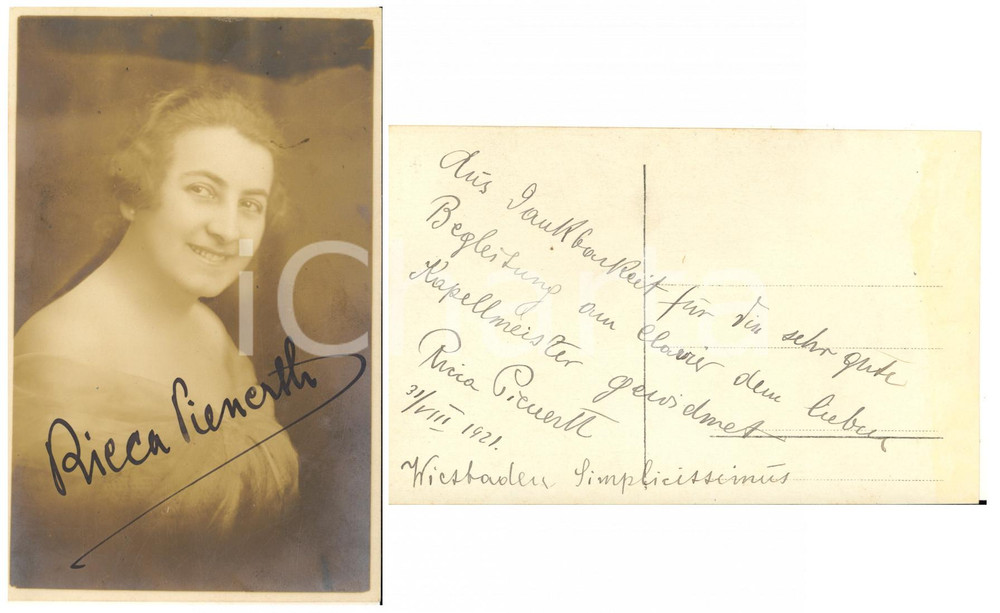 Ricca Pienerth
Aus Dankbarkeit für die sehr gute
Begleitung am Clavier dem lieben
Kapellmeister gewidmet
Ricca Pienerth
31/VIII 1921.
Wiesbaden Simplicissimus
iCharta